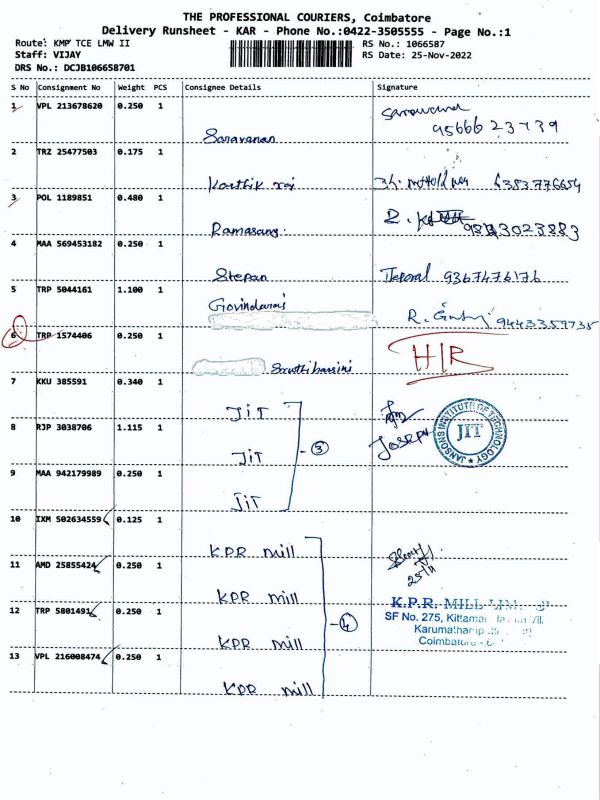 THE PROFESSIONAL COURIERS, Coimbatore
Delivery Runsheet - KAR - Phone No.:0422-3505555 - Page No.:1
Route: KMP TCE LMW II
RS No.: 1066587
Staff: VIJAY
RS Date: 25-Nov-2022
DRS No.: DCJB106658701
S No Consignment No Weight PCS Consignee Details Signature
1 VPL 213678620 0.250 1
Saravanan
2 TRZ 25477503 0.175 1
Karthik raj 6383776654
3 POL 1189851 0.480 1
Ramasang.
4 MAA 569453182 0.250 1
Stepan 9367476176
5 TRP 5044161 1.100 1
Govindaraj
R. 9443359735
6 TRP 1574406 0.250 1
Sruthibarsini
7 KKU 385591 0.340 1
JIT
8 RJP 3038706 1.115 1
JIT 3 Joseph
JANSONS INSTITUTE OF TECHNOLOGY
JIT
9 MAA 942179989 0.250 1
JIT
10 IXM 502634559 0.125 1
KPR mill
11 AMD 25855424 0.250 1
KPR mill 25/11
12 TRP 5801491 0.250 1
KPR mill 4
K.P.R. MILL
SF No. 275,
Coimbatore
13 VPL 216008474 0.250 1
KPR mill